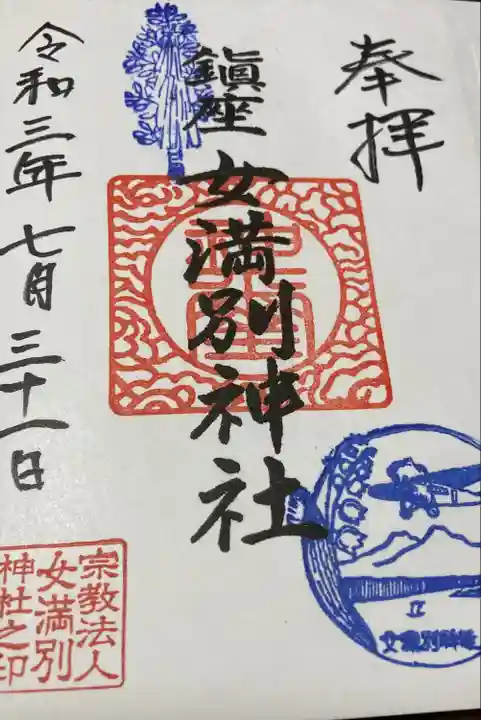 奉拝
鎮座
女満別神社
令和三年七月三十一日
宗教法人
女満別
神社之印
女満別神社